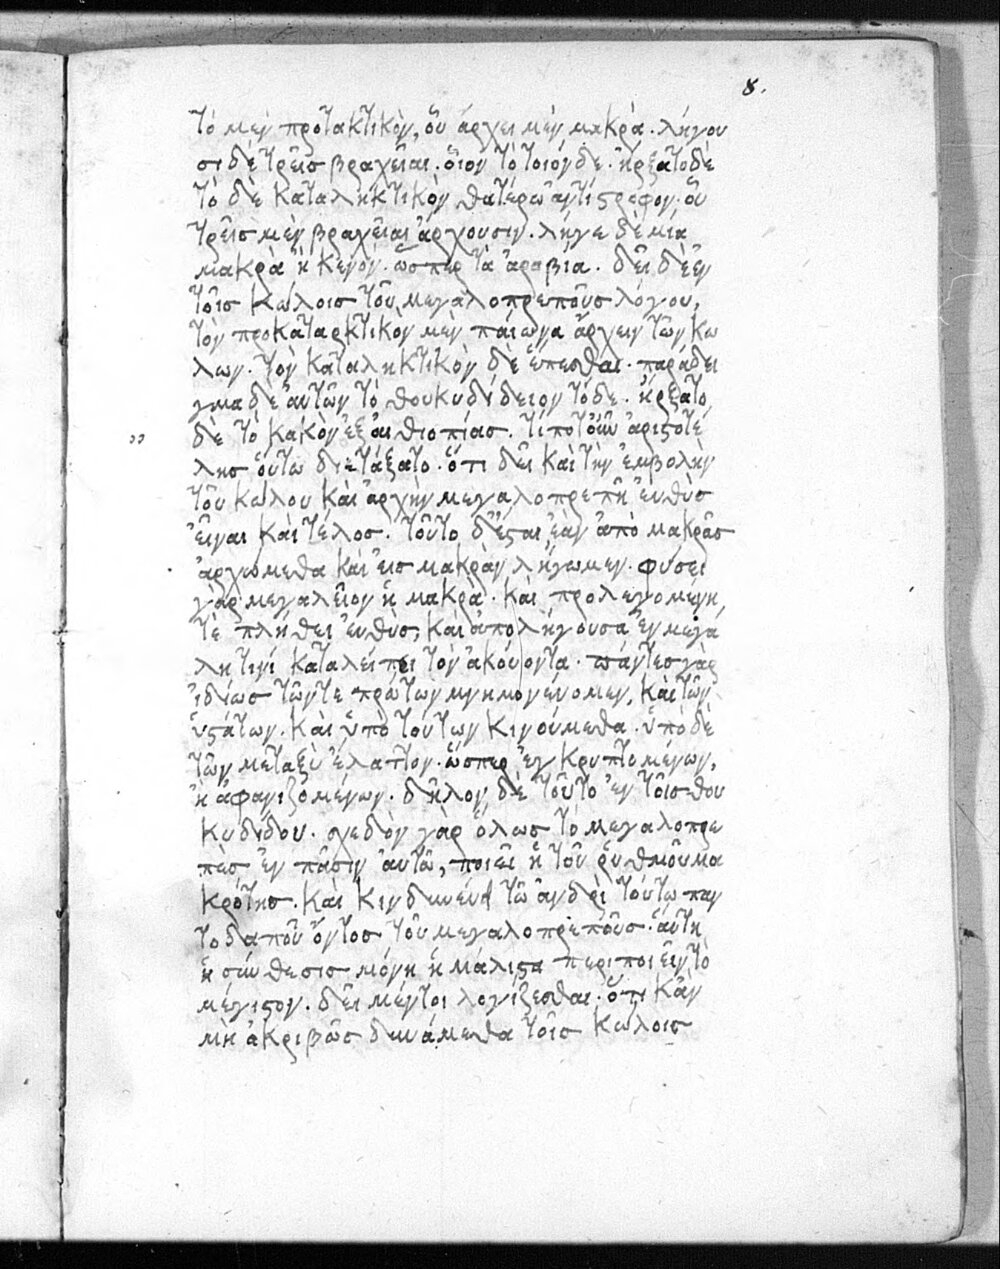 8.
τὸ μὲν προτακτικὸν, οὗ ἄρχει μὲν μακρὰ. λήγου
σι δὲ τρεῖς βραχεῖαι. οἷον τὸ τοιόνδε. ἤρξατο δὲ
τὸ δὲ καταληκτικὸν θατέρω ἀντίστρεφον. οὗ
τρεῖς μὲν βραχεῖαι ἄρχουσιν. λήγε δὲ μία
μακρὰ ἢ κενὸν. ὥσπερ τὰ ἀραβία. δεῖ δὲ ἐν
τοῖς κώλοις τοῦ μεγαλοπρεποῦς λόγου,
τὸν προκαταρκτικὸν μὲν παίωνα ἄρχειν τῶν κώ
λων. τὸν καταληκτικὸν δὲ ἕπεσθαι. παράδει
γμα δὲ αὐτῶν τὸ θουκυδίδειον τόδε. ἤρξατο
,, δὲ τὸ κακὸν ἐξ αἰθιοπίας. τί ποτ' οὖν ἀριστοτέ
λης οὕτω διετάξατο. ὅτι δεῖ καὶ τὴν ἐμβολὴν
τοῦ κώλου καὶ ἀρχὴν μεγαλοπρεπῆ εὐθὺς
εἶναι καὶ τέλος. τοῦτο δ' ἔσται ἐὰν ἀπὸ μακρᾶς
ἀρχώμεθα καὶ εἰς μακρὰν λήγωμεν. φύσει
γὰρ μεγαλεῖον ἡ μακρὰ. καὶ προλεγομένη
τε πλήθει εὐθὺς, καὶ ἀπολήγουσα ἐν μεγά
λη τινὶ καταλείπει τὸν ἀκούοντα. πάντες γὰρ
ἰδίως τῶν τε πρώτων μνημονεύομεν, καὶ τῶν
ὑστάτων. καὶ ὑπὸ τούτων κινούμεθα. ὑπὸ δὲ
τῶν μεταξὺ ἔλαττον. ὥσπερ ἐγκρυπτομένων,
ἢ ἀφανιζομένων. δῆλον δὲ τοῦτο ἐν τοῖς θου
κυδίδου. σχεδὸν γὰρ ὅλως τὸ μεγαλοπρε
πὲς ἐν πᾶσιν αὐτῶ, ποιεῖ ἡ τοῦ ῥυθμοῦ μα
κρότης. καὶ κινδυνεύει τῶ ἀνδρὶ τούτω παν
τοδαποῦ ὄντος τοῦ μεγαλοπρεποῦς. αὕτη
ἡ σύνθεσις μόνη ἢ μάλιστα περιποιεῖν τὸ
μέγιστον. δεῖ μέντοι λογίζεσθαι. ὅτι κἂν
μὴ ἀκριβῶς δυνάμεθα τοῖς κώλοις